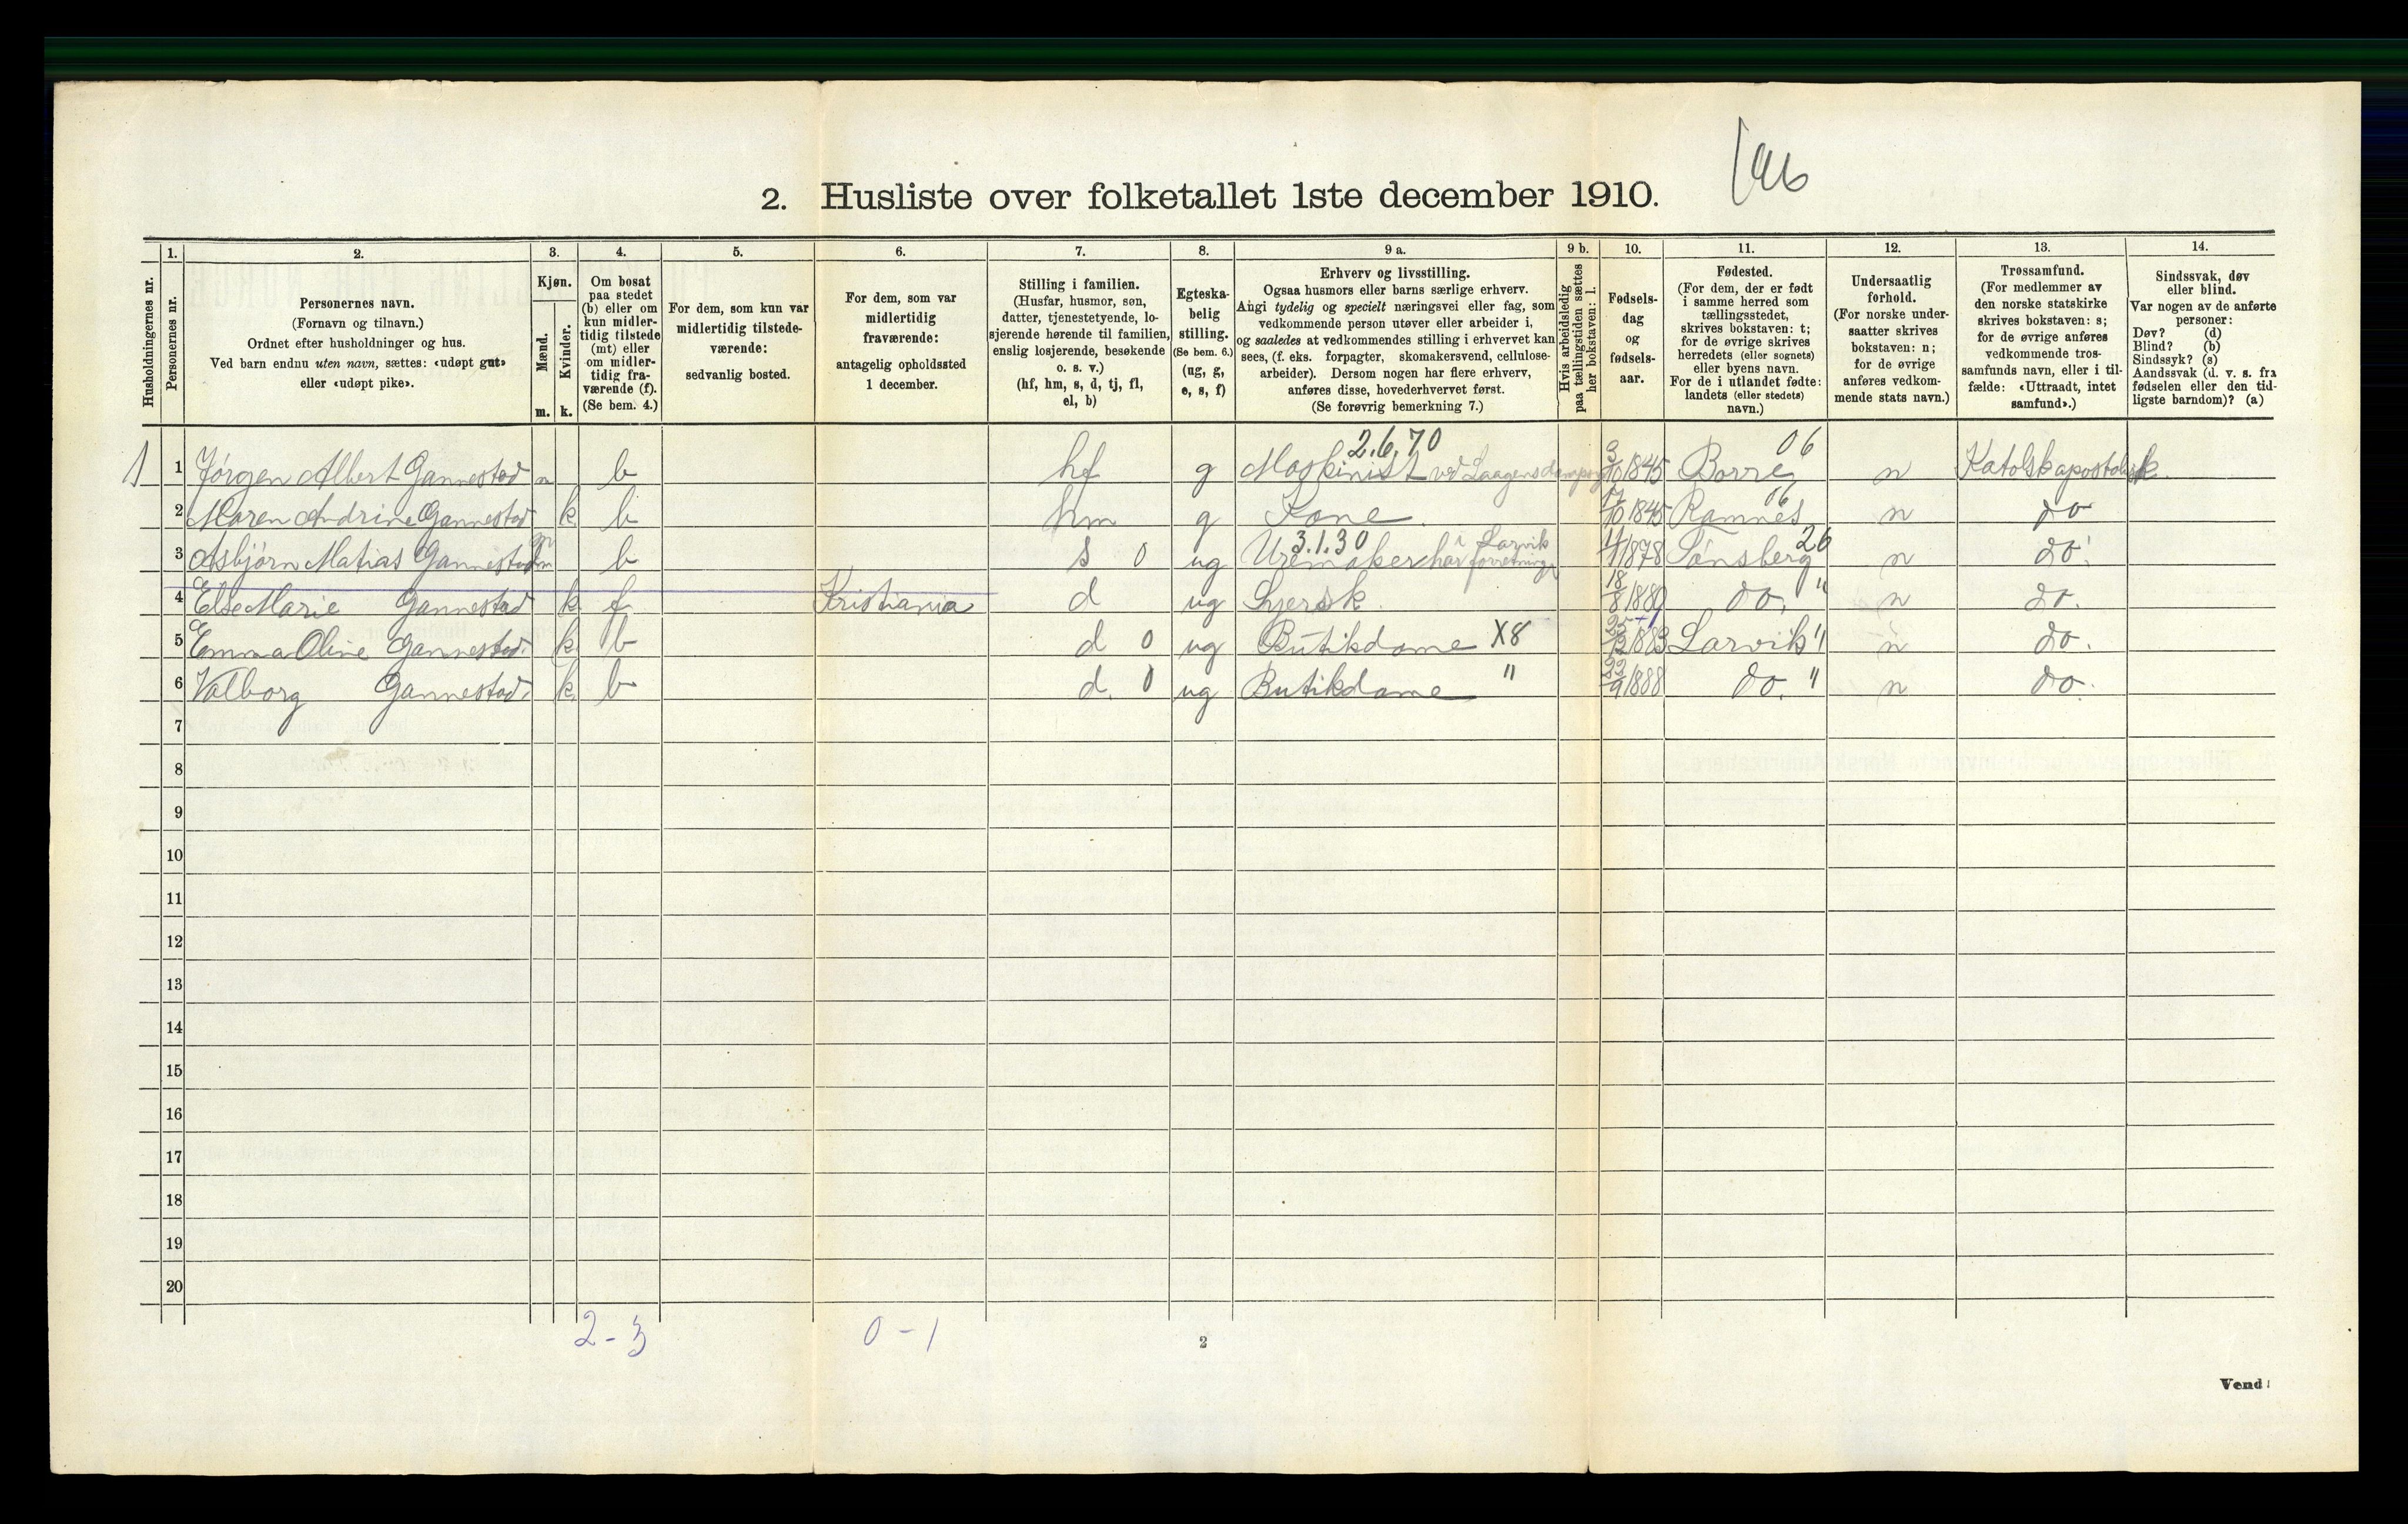 2. Husliste over folketallet 1ste december 1910.
Husholdningernes nr.
1. Personernes nr.
2. Personernes navn.
(Fornavn og tilnavn.)
Ordnet efter husholdninger og hus.
Ved barn endnu uten navn, sættes: «udøpt gut»
eller «udøpt pike».
3. Kjøn.
Mænd. m.
Kvinder. k.
4. Om bosat
paa stedet
(b) eller om
kun midler-
tidig tilstede
(mt) eller
om midler-
tidig fra-
værende (f).
(Se bem. 4.)
5. For dem, som kun var
midlertidig tilstede-
værende:
sedvanlig bosted.
6. For dem, som var
midlertidig
fraværende:
antagelig opholdssted
1 december.
7. Stilling i familien.
(Husfar, husmor, søn,
datter, tjenestetyende, lo-
sjerende hørende til familien,
enslig losjerende, besøkende
o. s. v.)
(hf, hm, s, d, tj, fl,
el, b)
8. Egteska-
belig
stilling.
(Se bem. 6.)
(ug, g,
e, s, f)
9 a. Erhverv og livsstilling.
Ogsaa husmors eller barns særlige erhverv.
Angi tydelig og specielt næringsvei eller fag, som
vedkommende person utøver eller arbeider i,
og saaledes at vedkommendes stilling i erhvervet kan
sees, (f. eks. forpagter, skomakersvend, cellulose-
arbeider). Dersom nogen har flere erhverv,
anføres disse, hovederhvervet først.
(Se forøvrig bemerkning 7.)
9 b. Hvis arbeidsledig
paa tællingstiden sættes
her bokstaven: l.
10. Fødsels-
dag
og
fødsels-
aar.
11. Fødested.
(For dem, der er født
i samme herred som
tællingsstedet,
skrives bokstaven: t;
for de øvrige skrives
herredets (eller sognets)
eller byens navn.
For de i utlandet fødte:
landets (eller stedets)
navn.)
12. Undersaatlig
forhold.
(For norske under-
saatter skrives
bokstaven: n;
for de øvrige
anføres vedkom-
mende stats navn.)
13. Trossamfund.
(For medlemmer av
den norske statskirke
skrives bokstaven: s;
for de øvrige anføres
vedkommende tros-
samfunds navn, eller i til-
fælde: «Uttraadt, intet
samfund».)
14. Sindssvak, døv
eller blind.
Var nogen av de anførte
personer:
Døv? (d)
Blind? (b)
Sindssyk? (s)
Aandssvak (d. v. s. fra
fødselen eller den tid-
ligste barndom)? (a)
2.6.70 06
1 1 Jørgen Albert Gannestad m b hf g Maskinist ved Laagens 3/10 1845 Borre n Katolskapostolisk.
06
2 Maren Andrine Gannestad k b hm g Kone. 10 1845 Ramnes n do
3.1.30 i Larvik 26
3 Asbjørn Matias Gannestad m b s 0 ug Uremaker har forretning 1878 Tønsberg n do.
4 Else Marie Gannestad k f Kristiania d ug Syersk. 18/8 1880 do. " n do.
5 Emma Oline Gannestad. k b d 0 ug Butikdame X8 1883 Larvik " n do.
6 Valborg Gannestad. k b d. 0 ug Butikdame " 9 1888 do. " n do.
7
8
9
10
11
12
13
14
15
16
17
18
19
20
2-3 0-1
2
Vend!